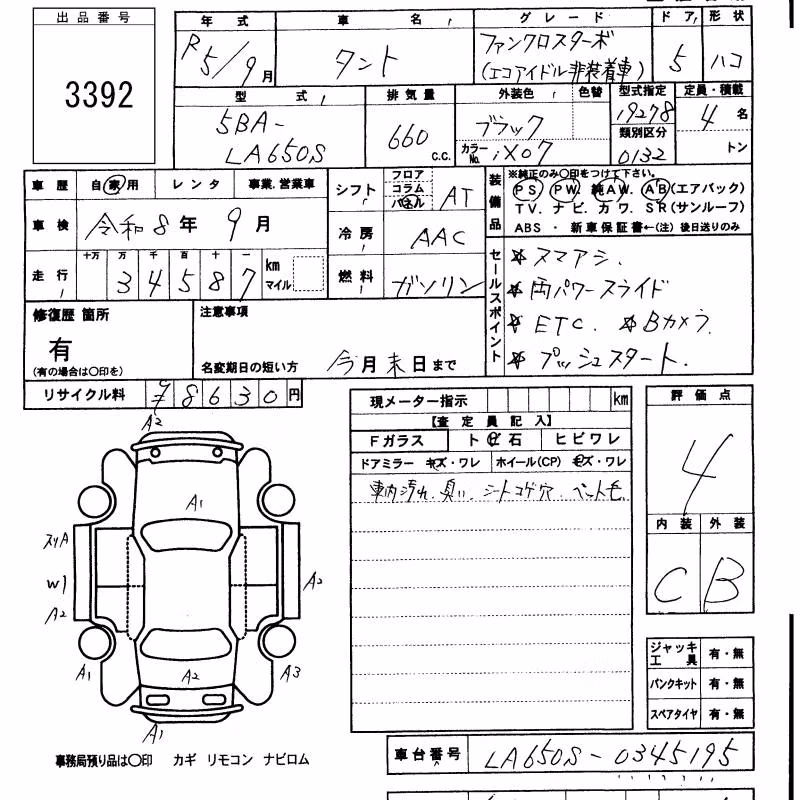 出品番号
3392
年式 車名 グレード ドア 形状
R5/9月 タント ファンクロスターボ
(エコアイドル非装着車) 5 ハコ
型式 排気量 外装色 色替 型式指定 定員・積載
5BA-
LA650S 660 c.c. ブラック 19278 4名
カラーNo. X07 類別区分 0132 トン
車歴 自家用 レンタ 事業.営業車
車検 令和8年9月
走行 十万 万 千 百 十 一 km マイル
34587
シフト フロア コラム パネル AT
冷房 AAC
燃料 ガソリン
装備品 ※純正のみ〇印をつけて下さい。
PS PW 純AW. AB(エアバック)
TV. ナビ. カワ. SR(サンルーフ)
ABS ・ 新車保証書←(注) 後日送りのみ
セールスポイント
☆ スマアシ.
☆ 両パワースライド
☆ ETC. ☆ Bカメラ
☆ プッシュスタート.
修復歴 箇所
有
(有の場合は〇印を)
注意事項
名変期日の短い方 今月末日まで
リサイクル料 ¥8630円
現メーター指示 km
【査定員記入】
Fガラス トビ石 ヒビワレ
ドアミラー キズ・ワレ ホイール(CP) キズ・ワレ
車内汚れ. 臭い. シートコゲ穴. ペット毛
評価点
4
内装 外装
C B
ジャッキ
工具 有・無
パンクキット 有・無
スペアタイヤ 有・無
A2
A1
スリA
W1
A2
A2
A1
A2
A3
A1
事務局預り品は〇印 カギ リモコン ナビロム
車台番号 LA650S-0345195